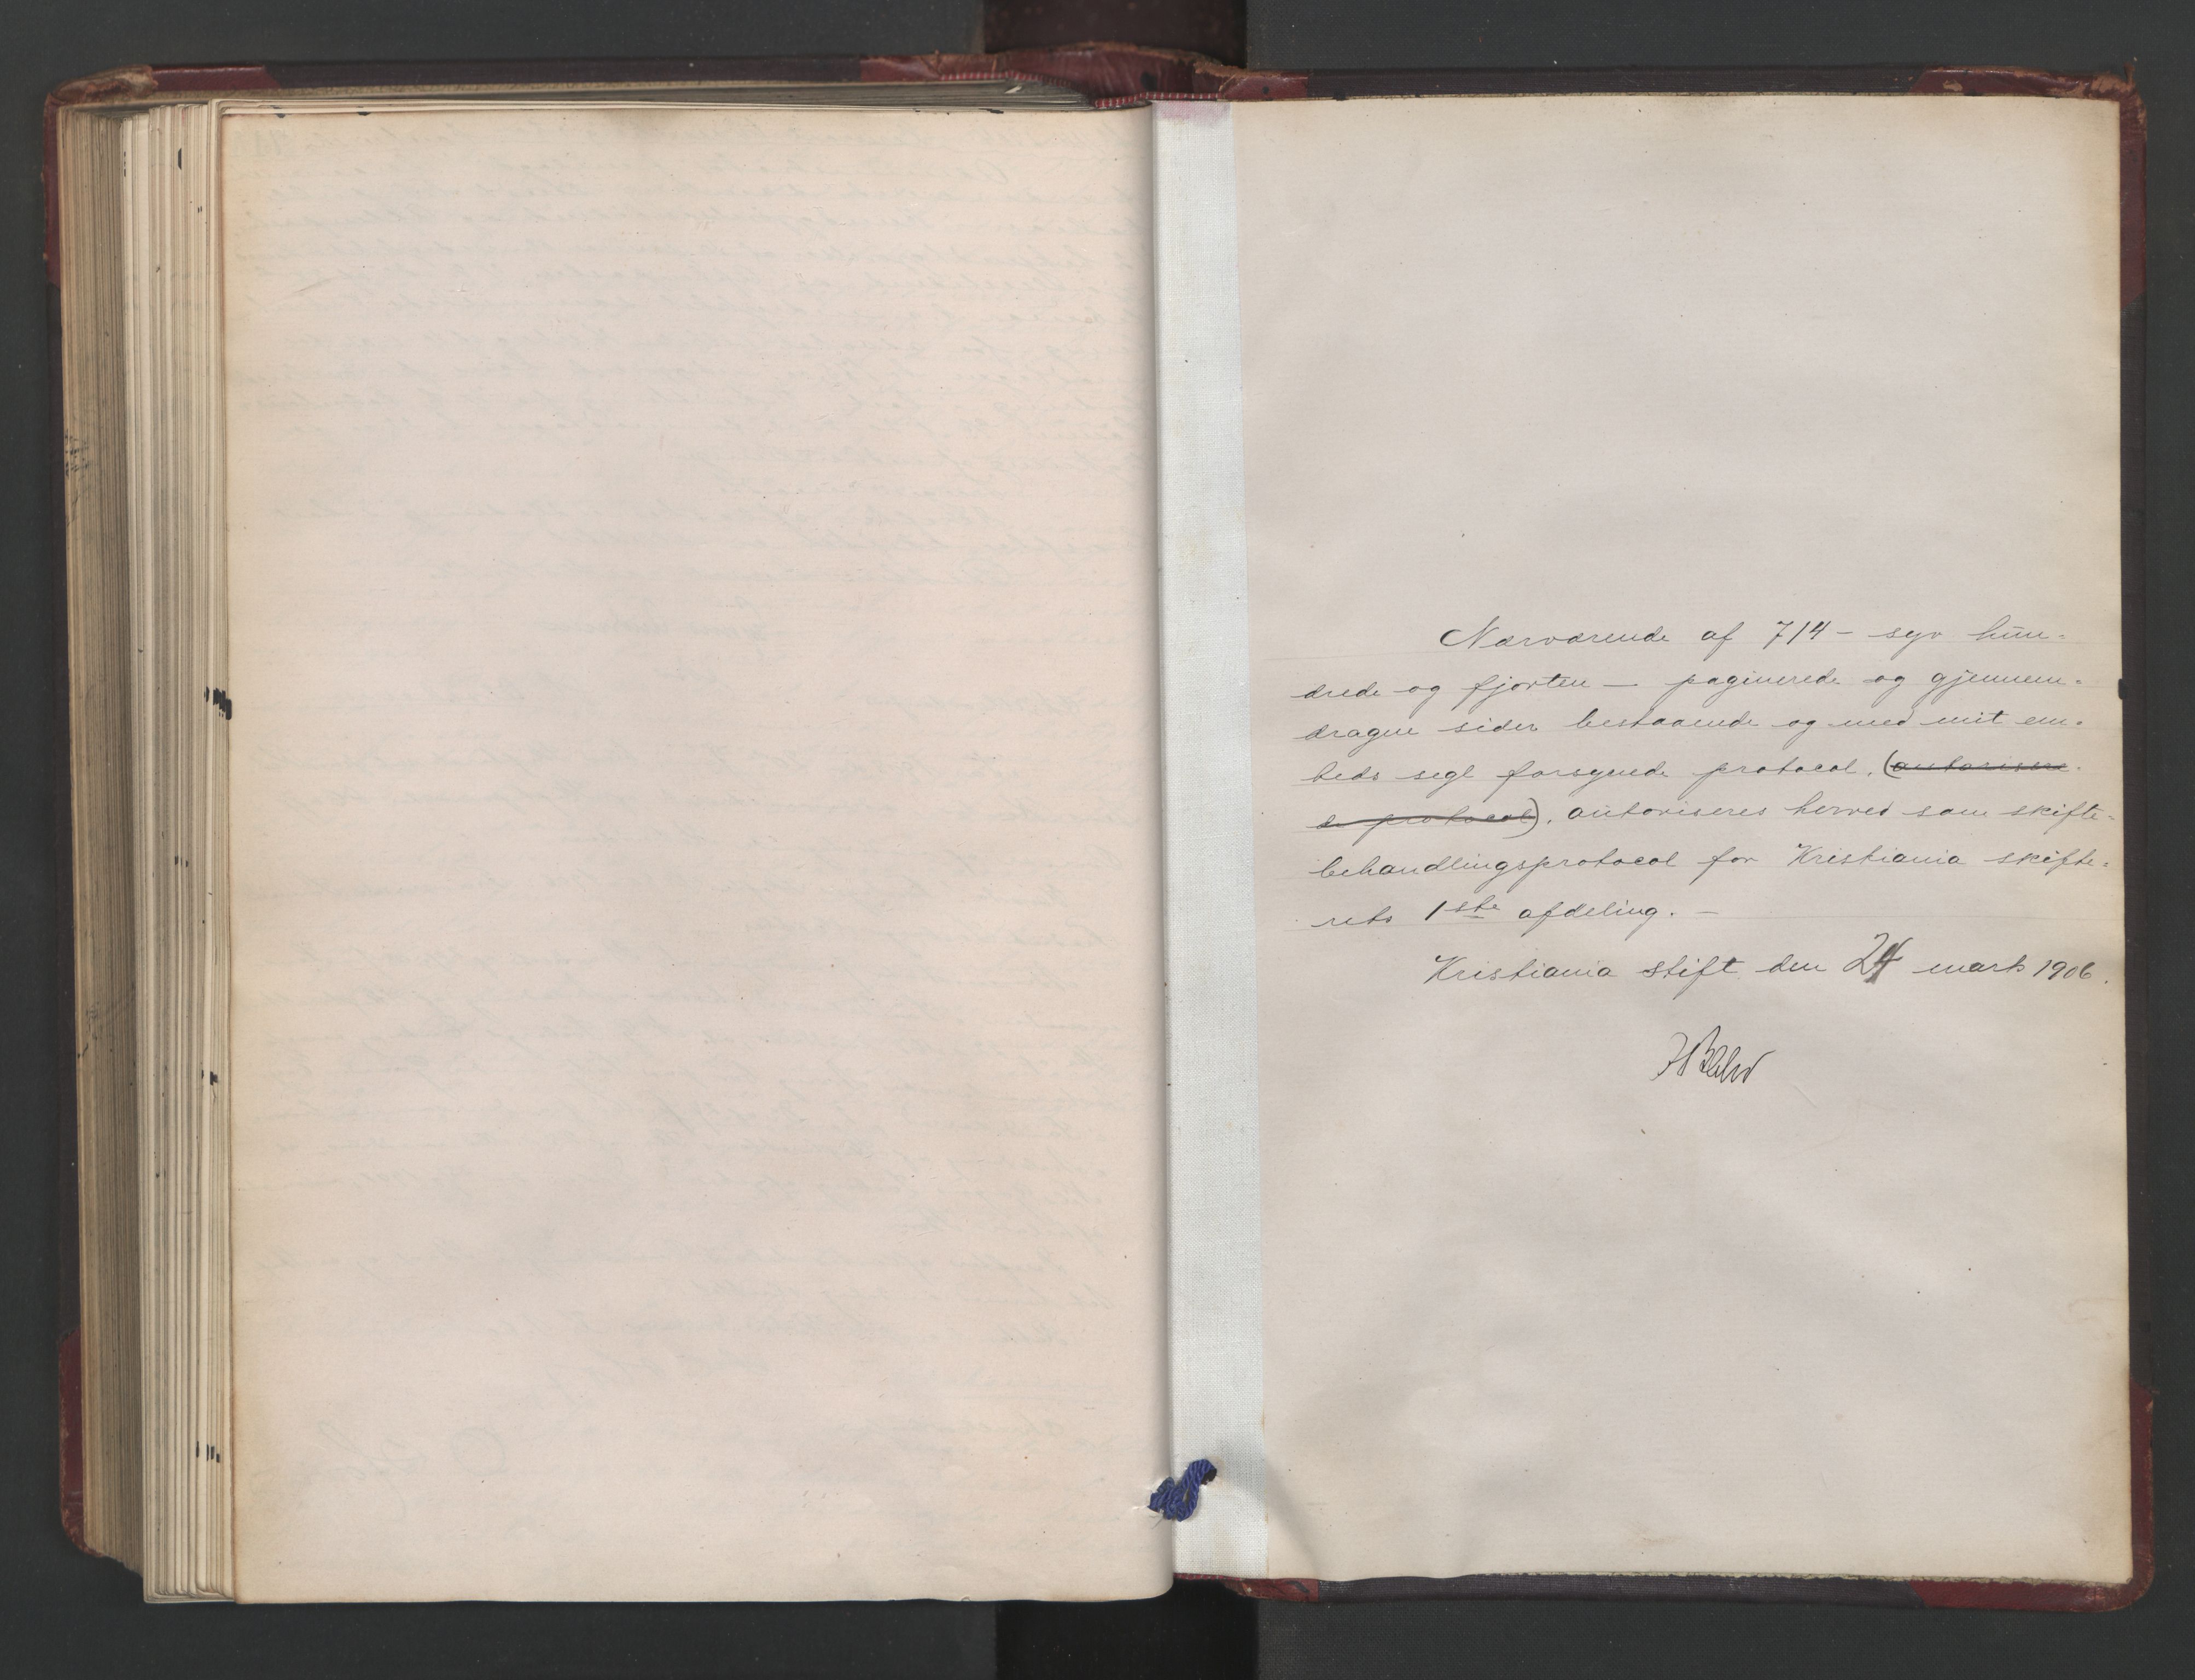 Nærværende af 714 – syv hun=
drede og fjorten — paginerede og gjennem=
dragne sider bestaaende og med mit em=
beds segl forsynede protocol, (autorisere
s protocol), autoriseres herved som skifte=
behandlingsprotocol for Kristiania skifte=
rets 1ste afdeling. –
Kristiania stift den 24 marts 1906.